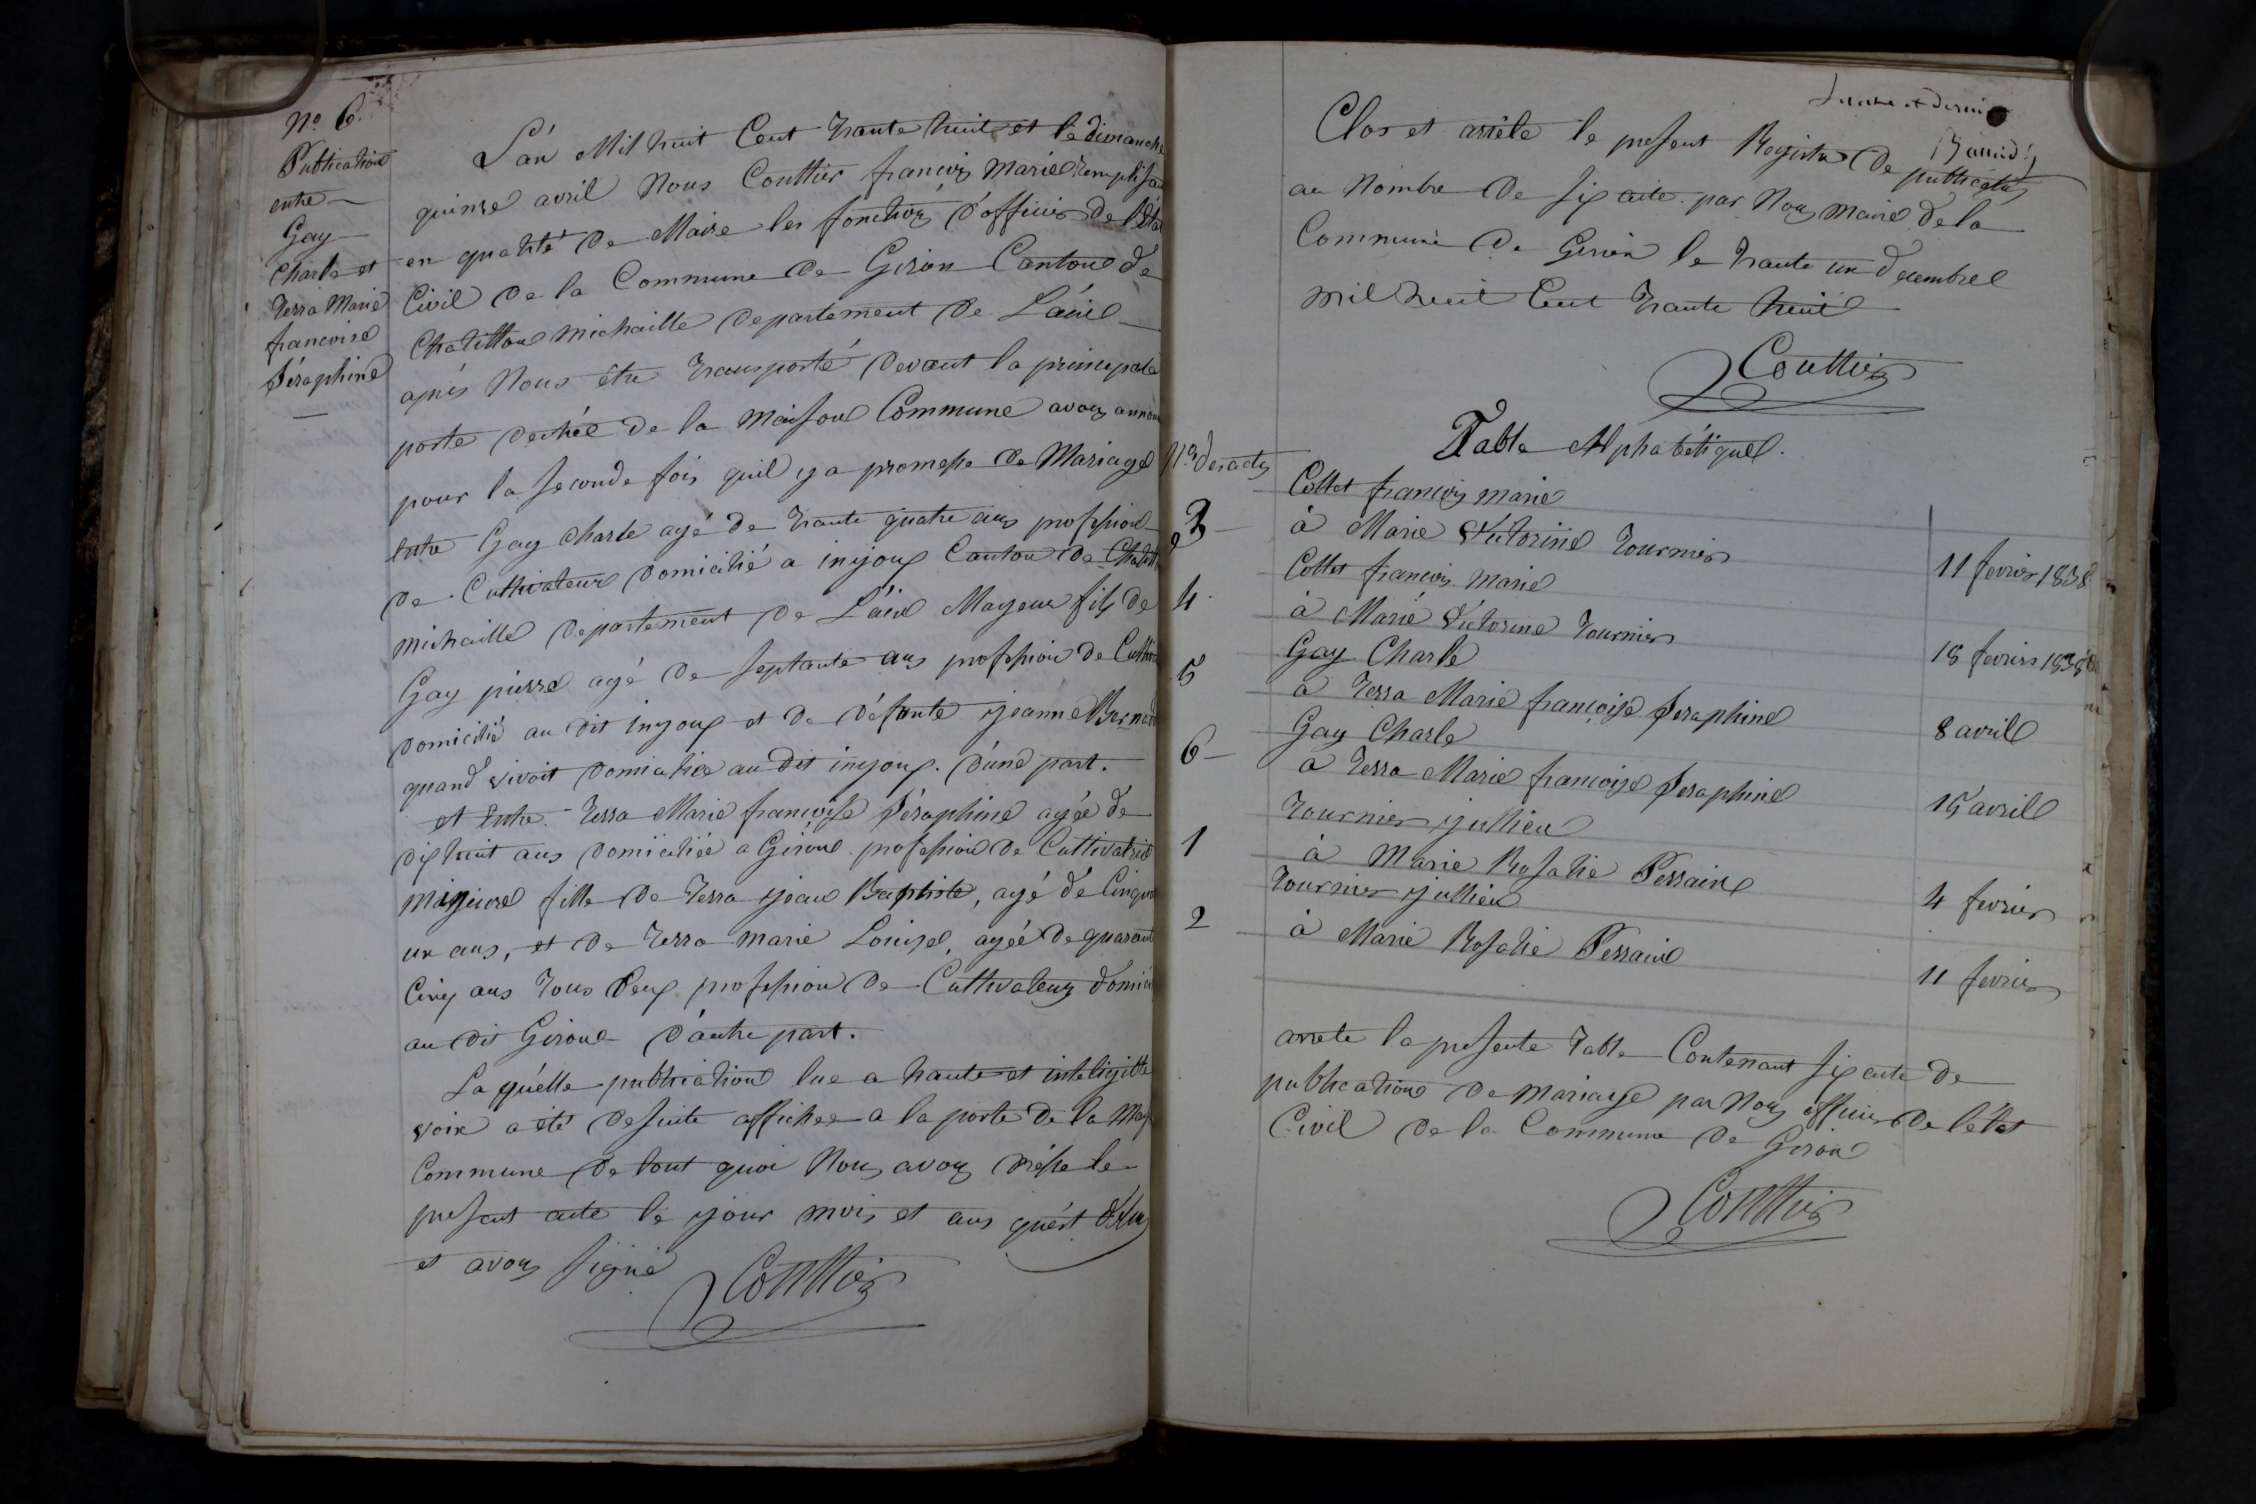 N.º 6.
Publication
entre
Gay
Charle et
Terra Marie
francoise
Séraphine
L'an Mil huit Cent trante huit et le dimanche
quinze avril Nous Couttier francois Marie remplissa
en qualité de Maire les fonctions d'officier de l'Eta
Civil de la Commune de Giron Canton de
Chatillon michaille departement de L'ain
après Nous être transporté devant la principale
porte dentrée de la maison Commune avons annon
pour la seconde fois quil y a promesse de Mariage
entre Gay charle agé de trante quatre ans profession
de Cultivateur domicilié a injoux Canton de Chatill
michaille departement de L'ain Mageur fils de
Gay pierre agé de septante ans profession de Cultiv
domicilié au dit injoux et de défunte jeanne Bernard
quand vivoit domiciliée au dit injoux. d'une part.
et Entre Terra Marie françoise Séraphine agée de
dix huit ans domiciliée a Giron profession de Cultivatrice
mineure fille de Terra jean Baptiste, agé de Cinqua
un ans, et de Terra marie Louise, agée de quarant
Cinq ans tous deux profession de Cultivateurs domici
au dit Giron d'autre part.
La quelle publication lue a haute et inteligible
voix a été desuite affichee a la porte de la Mais
Commune de tout quoi Nous avons dréssé le
present acte le jour mois et ans qu'ést dessus
et avons signé Couttier
Clos et arrêté le present Registre de publications
au Nombre de six acte par Nous maire de la
Commune de Giron le trante un decembre
mil huit Cent trante huit
Couttier
Table Alphabétique.
Nos des actes
Collet françois marie
3 à Marie Victorine Tournier 11 fevrier 1838
Collet francois Marie
4 à Marie Victorine Tournier 18 fevrier 1838
Gay Charle
5 a Terra Marie françoise Seraphine 8 avril
Gay Charle
6 a Terra Marie françoise Seraphine 15 avril
Tournier jullien
1 à Marie Rosalie Perrain 4 fevrier
Tournier jullien
2 à Marie Rosalie Perrain 11 fevrier
arrete la presente Table Contenant six acte de
publications de mariage par Nous officier de letat
Civil de la Commune de Giron
Couttier